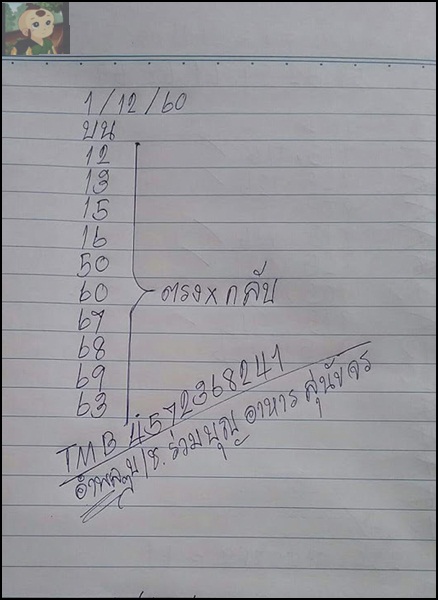 1/12/60
บน
12
13
15
16
50
60
67
68
69
63
ตรง x กลับ
TMB 4572368241
บ/ช. ร่วมบุญ อาหาร สุนัขจร